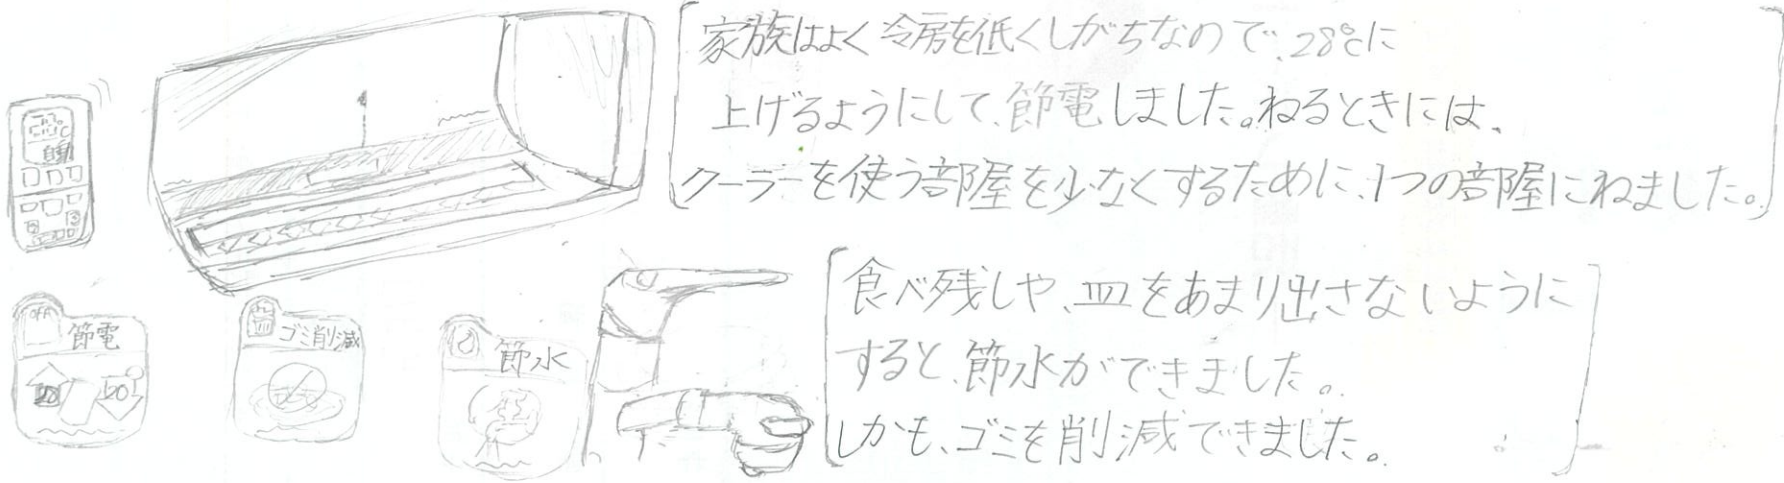 家族はよく冷房を低くしがちなので、28℃に
上げるようにして、節電しました。ねるときには、
クーラーを使う部屋を少なくするために、1つの部屋にねました。
食べ残しや、皿をあまり出さないように
すると、節水ができました。
しかも、ゴミを削減できました。
節電
ゴミ削減
節水